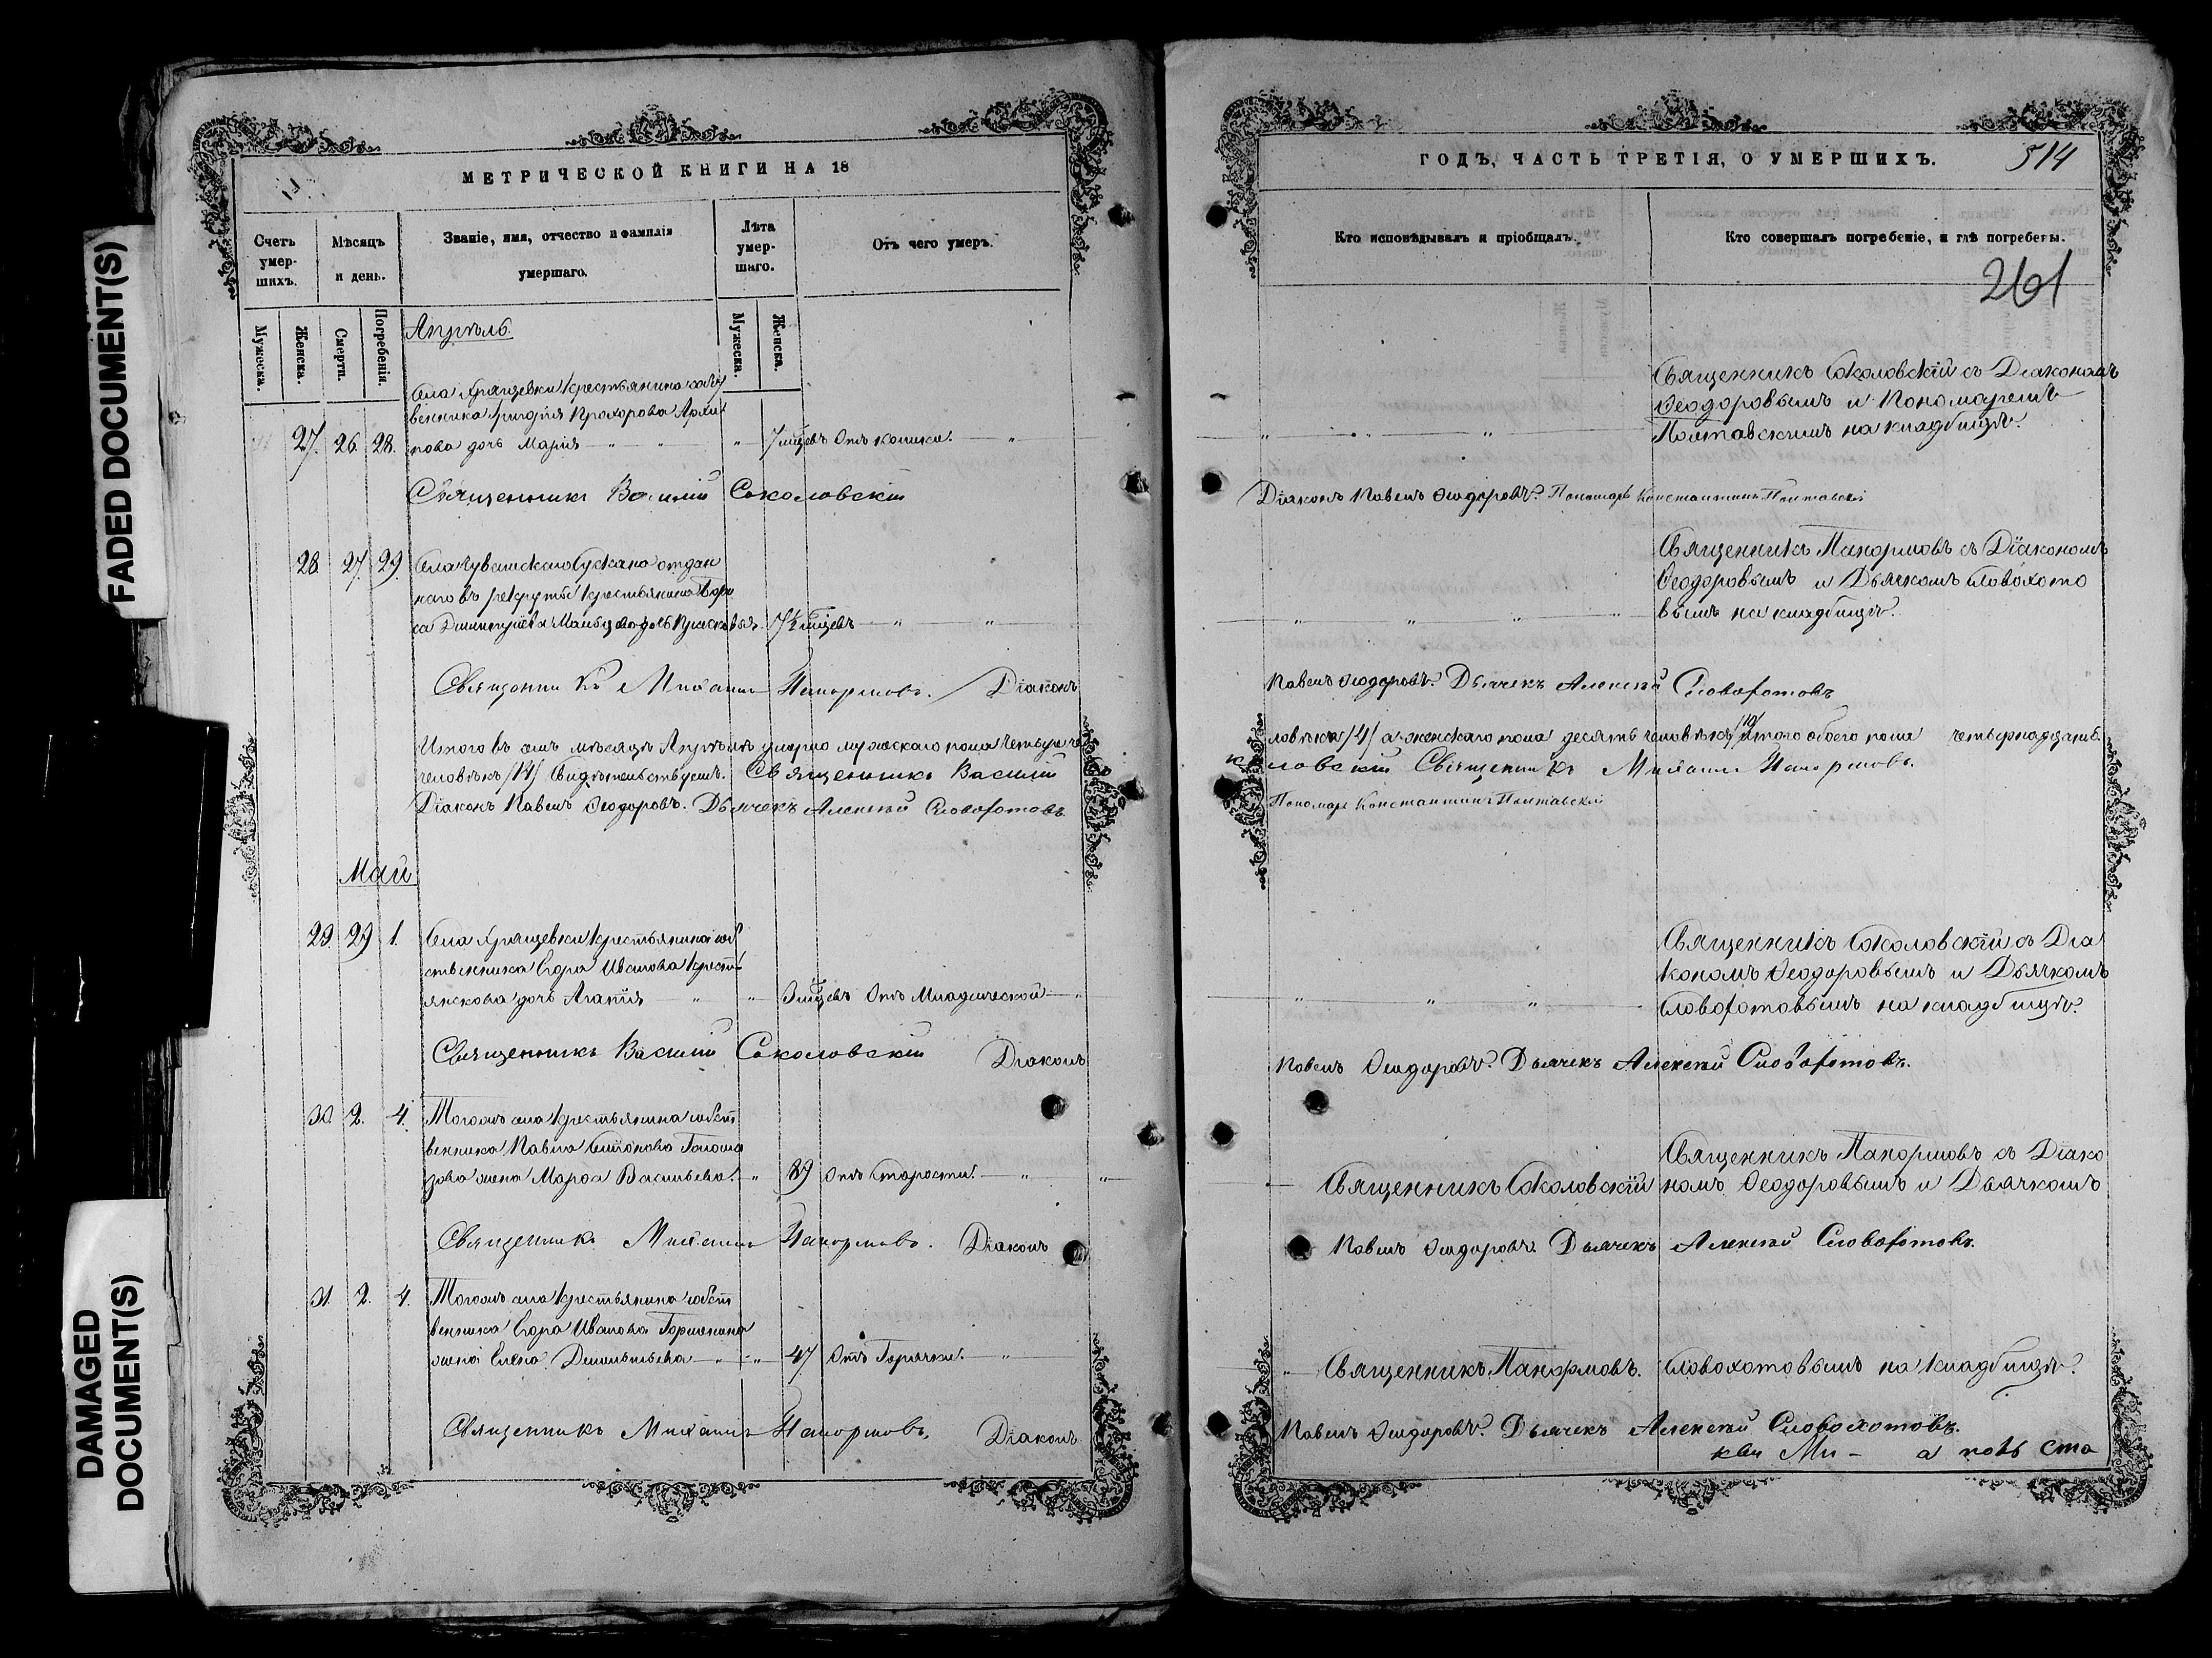 FADED DOCUMENT(S)
DAMAGED
DOCUMENT(S)
МЕТРИЧЕСКОЙ КНИГИ НА 18
Счетъ умер-шихъ.
Мѣсяцъ и день.
Званіе, имя, отчество и фамилія умершаго.
Лѣта умер-шаго.
Отъ чего умеръ.
Мужеска.
Женска.
Смерти.
Погребенія.
Мужеска.
Женска.
Апрѣль.
Села Хрящевки крестьянина собст
венника Григорія Прохорова Архи
27. 26. 28. пова дочь Марія " " " 7 мѣцевъ Отъ коники. "
Священникъ Василій Соколовскій
28. 27. 29. Села Чувашскаго Сускана отдан
наго въ рекруты крестьянина Бори
са Димитріева дочь Прасковья. 7½ мѣцевъ " "
Священникъ Михаилъ Панормовъ. Діаконъ
Итого въ семъ мѣсяцѣ Апрѣлѣ умерло мужескаго пола четыре че
человѣкъ /14/ Свидѣтельствуемъ. Священникъ Василій
Діаконъ Павелъ Ѳеодоровъ. Дьячекъ Алексѣй Словохотовъ
Май
29. 29 1. Села Хрящевки крестьянина соб
ственника Егора Иванова крест
янскова дочь Агапія " " 3 мѣцевъ Отъ Младенческой "
Священникъ Василій Соколовскій Діаконъ
30. 2. 4. Тогожъ села крестьянина собст
венника Павла
жена Васильева. " 89 Отъ Старости. " "
Священникъ Михаилъ Панормовъ. Діаконъ
31. 2. 4. Тогожъ села крестьянина собст
венника Егора Иванова Горшкина
жена Елена " " 47 Отъ Горячки. "
Священникъ Михаилъ Панормовъ. Діаконъ
ГОДЪ, ЧАСТЬ ТРЕТІЯ, О УМЕРШИХЪ. 514
Кто исповѣдывалъ и пріобщалъ.
Кто совершалъ погребеніе, и гдѣ погребены.
261
Священникъ Соколовскій съ Діакономъ
Ѳеодоровымъ и Пономаремъ
" " " Полтавскимъ на кладбищѣ.
Діаконъ Павелъ Ѳеодоровъ. Пономарь Константинъ Полтавскій
Священникъ Панормовъ съ Діакономъ
Ѳеодоровымъ и Дьячкомъ Словохото
" " " вымъ на кладбищѣ.
Павелъ Ѳеодоровъ. Дьячекъ Алексѣй Словохотовъ
ловѣкъ /4/ а женскаго пола десять человѣкъ /10/ итого обоего пола четырнадцать
коловскій Священникъ Михаилъ Панормовъ.
Пономарь Константинъ Полтавскій
Священникъ Соколовскій съ Діа
кономъ Ѳеодоровымъ и Дьячкомъ
" " " Словохотовымъ на кладбищѣ.
Павелъ Ѳеодоровъ. Дьячекъ Алексѣй Словохотовъ.
Священникъ Панормовъ съ Діако
Священникъ Соколовскій номъ Ѳеодоровымъ и Дьячкомъ
Павелъ Ѳеодоровъ. Дьячекъ Алексѣй Словохотовъ.
" Священникъ Панормовъ. Словохотовымъ на кладбищѣ.
Павелъ Ѳеодоровъ. Дьячекъ Алексѣй Словохотовъ.
кви Ми - а повъ ста